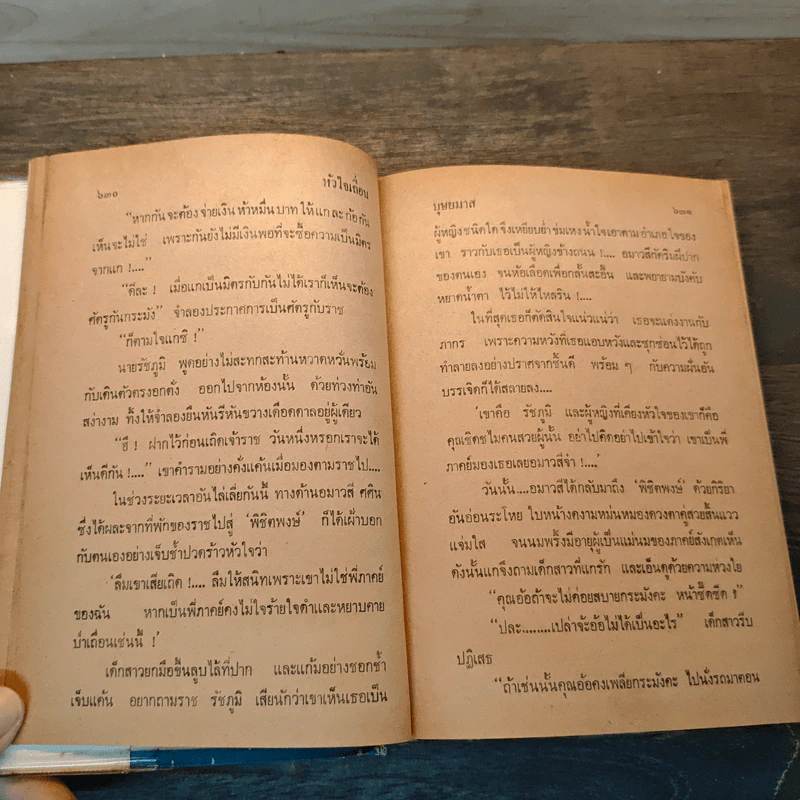 ๖๓๐
หัวใจเถื่อน
“หากกันจะต้องจ่ายเงินห้าหมื่นบาทให้แกละก้อกัน
เห็นจะไม่ใช่ เพราะกันยังไม่มีเงินพอที่จะซื้อความเป็นมิตร
จากแก !....”
“ดีละ ! เมื่อแกเป็นมิตรกับกันไม่ได้เราก็เห็นจะต้อง
ศัตรูกันกระมัง” จำลองประกาศการเป็นศัตรูกับราช
“ก็ตามใจแกซิ !”
นายรัชภูมิ พูดอย่างไม่สะทกสะท้านหวาดหวั่นพร้อม
กับเดินตัวตรงอกตั้ง ออกไปจากห้องนั้น ด้วยท่วงท่าอัน
สง่างาม ทิ้งให้จำลองยืนหันรีหันขวางเดือดดาลอยู่ผู้เดียว
“ฮึ ! ฝากไว้ก่อนเถิดเจ้าราช วันหนึ่งหรอกเราจะได้
เห็นดีกัน !....” เขาคำรามอย่างคั่งแค้นเมื่อมองตามราชไป....
ในช่วงระยะเวลาอันไล่เลี่ยกันนี้ ทางด้านอมาวสี ศศิน
ซึ่งได้ผละจากที่พักของราชไปสู่ ‘พิชิตพงษ์’ ก็ได้เฝ้าบอก
กับตนเองอย่างเจ็บช้ำปวดร้าวหัวใจว่า
‘ลืมเขาเสียเถิด !.... ลืมให้สนิทเพราะเขาไม่ใช่พี่ภาคย์
ของฉัน หากเป็นพี่ภาคย์คงไม่ใจร้ายใจดำและหยาบคาย
ป่าเถื่อนเช่นนี้ !’
เด็กสาวยกมือขึ้นลูบไล้ที่ปาก และแก้มอย่างชอกช้ำ
เจ็บแค้น อยากถามราช รัชภูมิ เสียนักว่าเขาเห็นเธอเป็น
บุษยมาส
๖๓๑
ผู้หญิงชนิดใด จึงเหยียบย่ำ ข่มเหงน้ำใจเอาตามอำเภอใจของ
เขา ราวกับเธอเป็นผู้หญิงข้างถนน !.... อมาวสีกัดริมฝีปาก
ของตนเอง จนห้อเลือดเพื่อกลั้นสะอื้น และพยายามบังคับ
หยาดน้ำตา ไว้ไม่ให้ไหลริน !....
ในที่สุดเธอก็ตัดสินใจแน่วแน่ว่า เธอจะแต่งงานกับ
ภากร เพราะความหวังที่เธอแอบหวังและซุกซ่อนไว้ได้ถูก
ทำลายลงอย่างปราศจากชิ้นดี พร้อม ๆ กับความฝันอัน
บรรเจิดก็ได้สลายลง....
‘เขาคือ รัชภูมิ และผู้หญิงที่เคียงหัวใจของเขาก็คือ
คุณชิดชไมคนสวยผู้นั้น อย่าไปคิดอย่าไปเข้าใจว่า เขาเป็นพี่
ภาคย์มองเธอเลยอมาวสีจ๋า !....’
วันนั้น....อมาวสีได้กลับมาถึง ‘พิชิตพงษ์’ ด้วยกิริยา
อันอ่อนระโหย ใบหน้างดงามหม่นหมองดวงตาคู่สวยสิ้นแวว
แจ่มใส จนนมพริ้งมีอายุผู้เป็นแม่นมของภาคย์สังเกตเห็น
ดังนั้นแกจึงถามเด็กสาวที่แกรัก และเอ็นดูด้วยความห่วงใย
“คุณอ้อถ้าจะไม่ค่อยสบายกระมังคะ หน้าซี๊ดซีด ?”
“ปละ........เปล่าจ้ะอ้อไม่ได้เป็นอะไร” เด็กสาวรีบ
ปฏิเสธ
“ถ้าเช่นนั้นคุณอ้อคงเพลียกระมังคะ ไปนั่งรถมาตอน